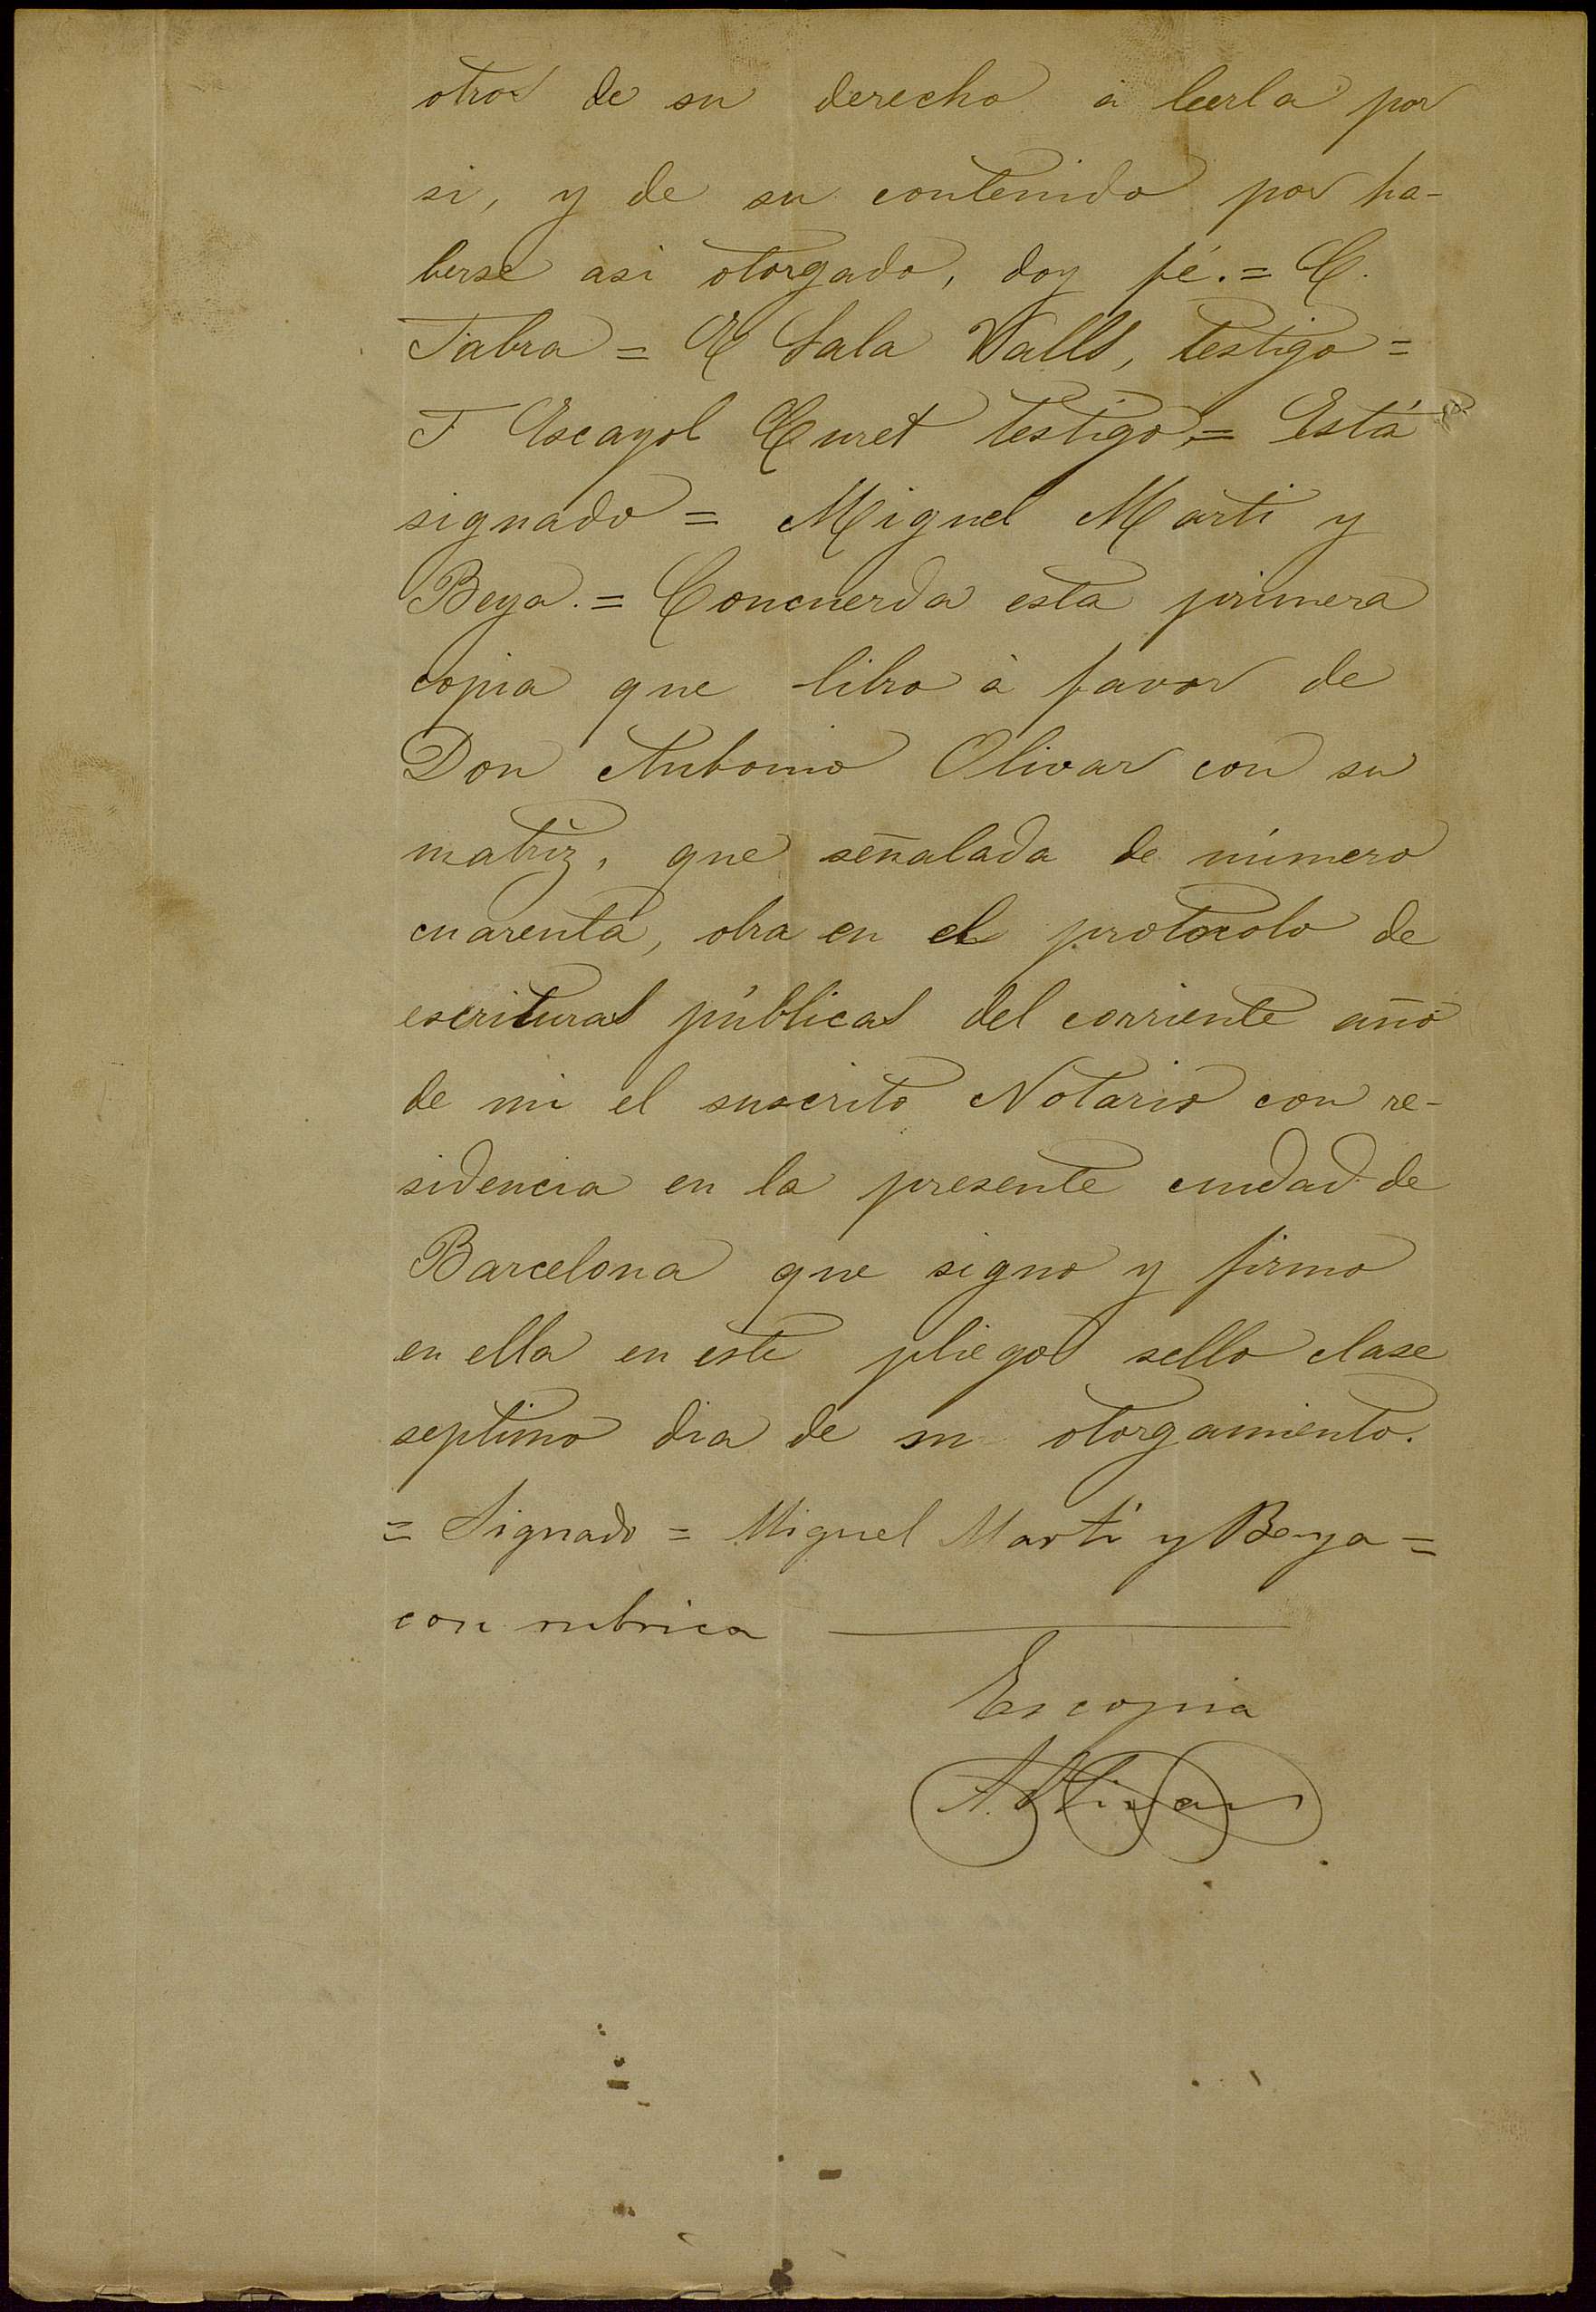 otros de su derecho á leerla por
si, y de su contenido por ha-
berse asi otorgado, doy fé. = C.
Fabra = E Sala Valls, testigo =
F Escayol Curet testigo, = Está
signado = Miguel Marti y
Beya. = Concuerda esta primera
copia que libro à favor de
Don Antonio Olivar con su
matriz, que señalada de número
cuarenta, obra en el protocolo de
escrituras públicas del corriente año
de mi el suscrito Notario con re-
sidencia en la presente ciudad de
Barcelona que signo y firmo
en ella en este pliego sello clase
septimo dia de su otorgamiento.
= Signado = Miguel Martí y Beya =
con rubrica
Es copia
A. Olivar